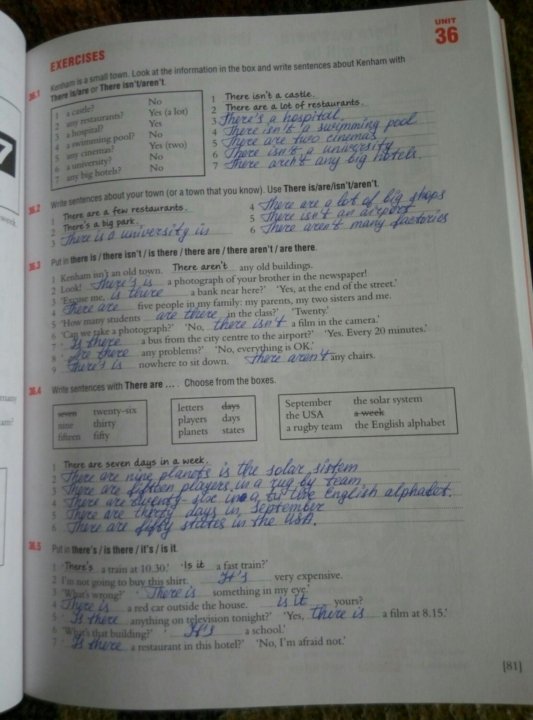 UNIT
36
EXERCISES
36.1 Kenham is a small town. Look at the information in the box and write sentences about Kenham with
There is/are or There isn't/aren't.
1 a castle? No
2 any restaurants? Yes (a lot)
3 a hospital? Yes
4 a swimming pool? No
5 any cinemas? Yes (two)
6 a university? No
7 any big hotels? No
1 There isn't a castle.
2 There are a lot of restaurants.
3 There's a hospital.
4 There isn't a swimming pool
5 There are two cinemas
6 There isn't a university
7 There aren't any big hotels.
36.2 Write sentences about your town (or a town that you know). Use There is/are/isn't/aren't.
1 There are a few restaurants.
2 There's a big park.
3 There is a university in
4 There are a lot of big shops
5 There isn't an airport
6 There aren't many factories
36.3 Put in there is / there isn't / is there / there are / there aren't / are there.
1 Kenham isn't an old town. There aren't any old buildings.
2 Look! There's is a photograph of your brother in the newspaper!
3 'Excuse me, is there a bank near here?' 'Yes, at the end of the street.'
4 There are five people in my family: my parents, my two sisters and me.
5 'How many students are there in the class?' 'Twenty.'
6 'Can we take a photograph?' 'No, there isn't a film in the camera.'
7 ' Is there a bus from the city centre to the airport?' 'Yes. Every 20 minutes.'
8 ' Are there any problems?' 'No, everything is OK.'
9 There's is nowhere to sit down. There aren't any chairs.
36.4 Write sentences with There are ... . Choose from the boxes.
seven twenty-six
nine thirty
fifteen fifty
letters days
players days
planets states
September the solar system
the USA a week
a rugby team the English alphabet
1 There are seven days in a week.
2 There are nine planets is the solar sistem
3 There are fifteen players in a rug by team
4 There are twenty-six in a English alphabet.
5 There are thirty days in September
6 There are fifty states in the USA.
36.5 Put in there's / is there / it's / is it.
1 'There's a train at 10.30.' 'Is it a fast train?'
2 I'm not going to buy this shirt. It's very expensive.
3 'What's wrong?' 'There is something in my eye.'
4 There is a red car outside the house. Is it yours?
5 ' Is there anything on television tonight?' 'Yes, there is a film at 8.15.'
6 'What's that building?' ' It's a school.'
7 ' Is there a restaurant in this hotel?' 'No, I'm afraid not.'
[81]